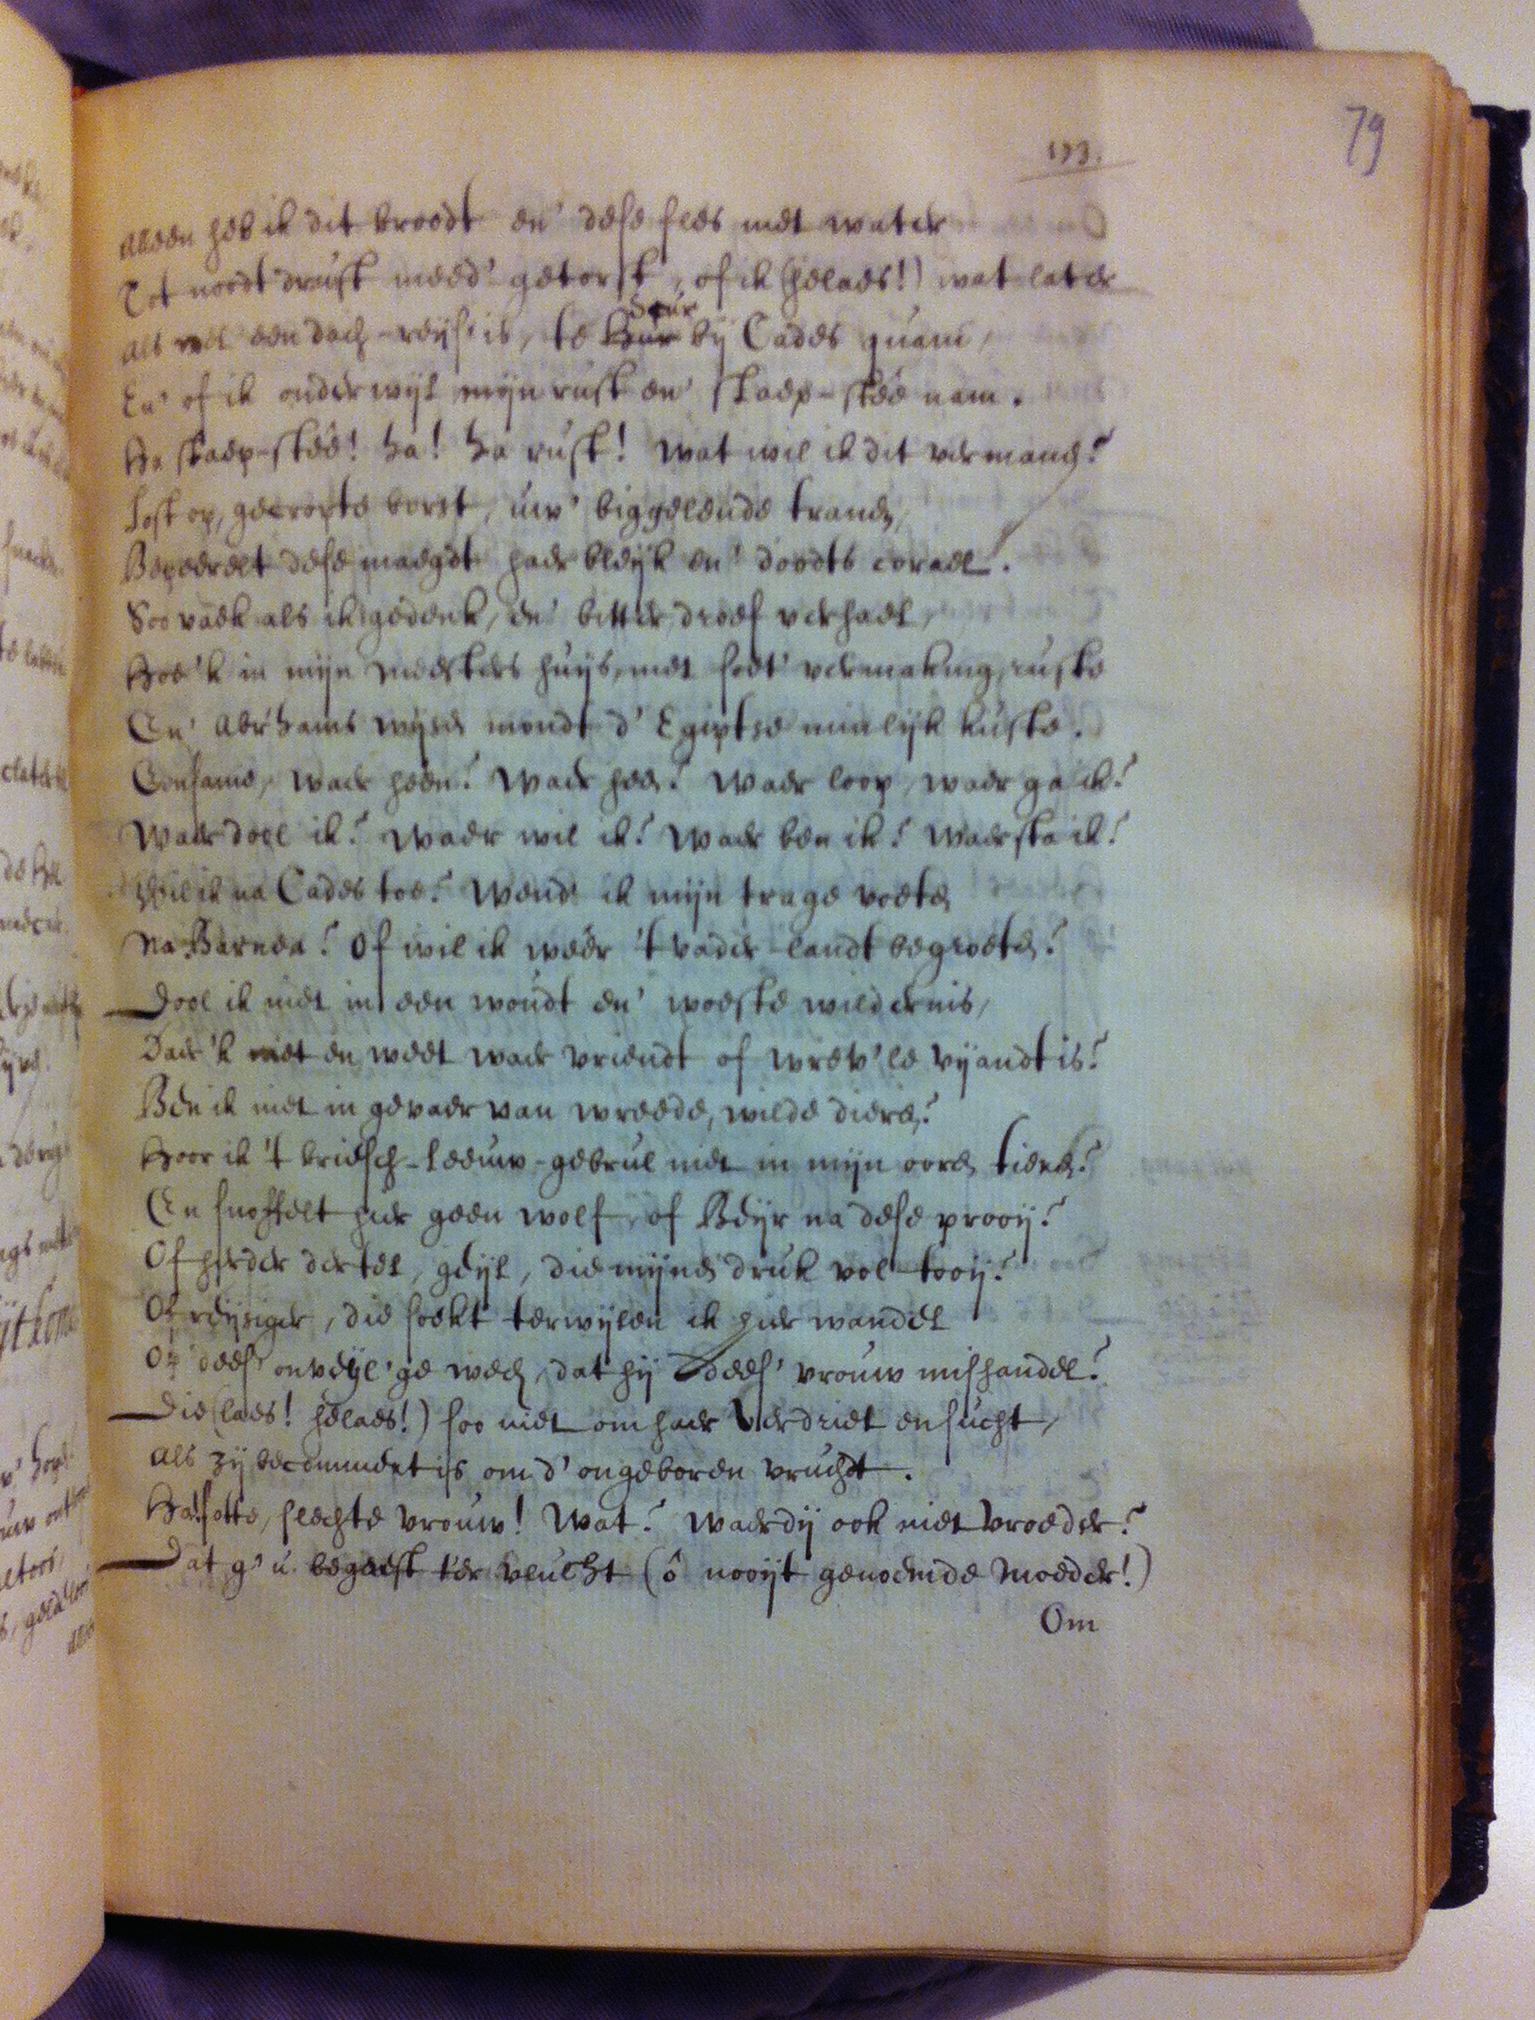 79
133.
Alleen heb ik dit broodt en' dese fles met water
Tot noodtdruft meed' getorst, of ik (helaes!) wat later
Als wel een dach-reyse is, te Hur Seur by Cades quam,
En' of ik onderwijl mijn rust en' slaep-steê nam.
Ha slaep-steê! ha! ha rust! Wat wil ik dit vermanen?
Lost op, gecropte borst, uw' biggelende tranen,
Bepeerelt dese maegdt haer bleijk en' doodts corael.
Soo vaek als ik gedenk, en' bitter droef verhael,
Hoe 'k in mijn meesters huijs, met soet' vermaking, ruste
En' Abr'hams wijsen mondt d' Egiptse minlijk kuste.
Eensame, waer heen? Waer heen? Waer loop, waer ga ik?
Waer dool ik? Waer wil ik? Waer ben ik? Waer sta ik?
Wil ik na Cades toe? Wend' ik mijn trage voeten
Na Barnea? Of wil ik weêr 't vader-landt begroeten?
Dool ik niet in een woudt en' woeste wildernis,
Daer 'k niet en weet waer vriendt of wrev'le vijandt is?
Ben ik niet in gevaer van wreede, wilde dieren?
Hoor ik 't briesch-leeuw-gebrul niet in mijn ooren tieren?
En snoffelt hier geen wolf, of Beijr na dese prooij?
Of herder dertel, geijl, die mijnen druk vol-tooij?
Of reijsiger, die soekt terwijlen ik hier wandel
Op dees' onveijl'ge weg, dat hij dees' vrouw mishandel?
Die (laes! helaes!) soo niet om haer verdriet en sucht,
Als zij becommert is om d' ongeboren vrucht.
Ha! sotte, slechte vrouw! Wat? Waerdij ook niet vroeder?
Dat g' u begaeft ter vlucht (ô nooijt genoemde moeder!)
Om